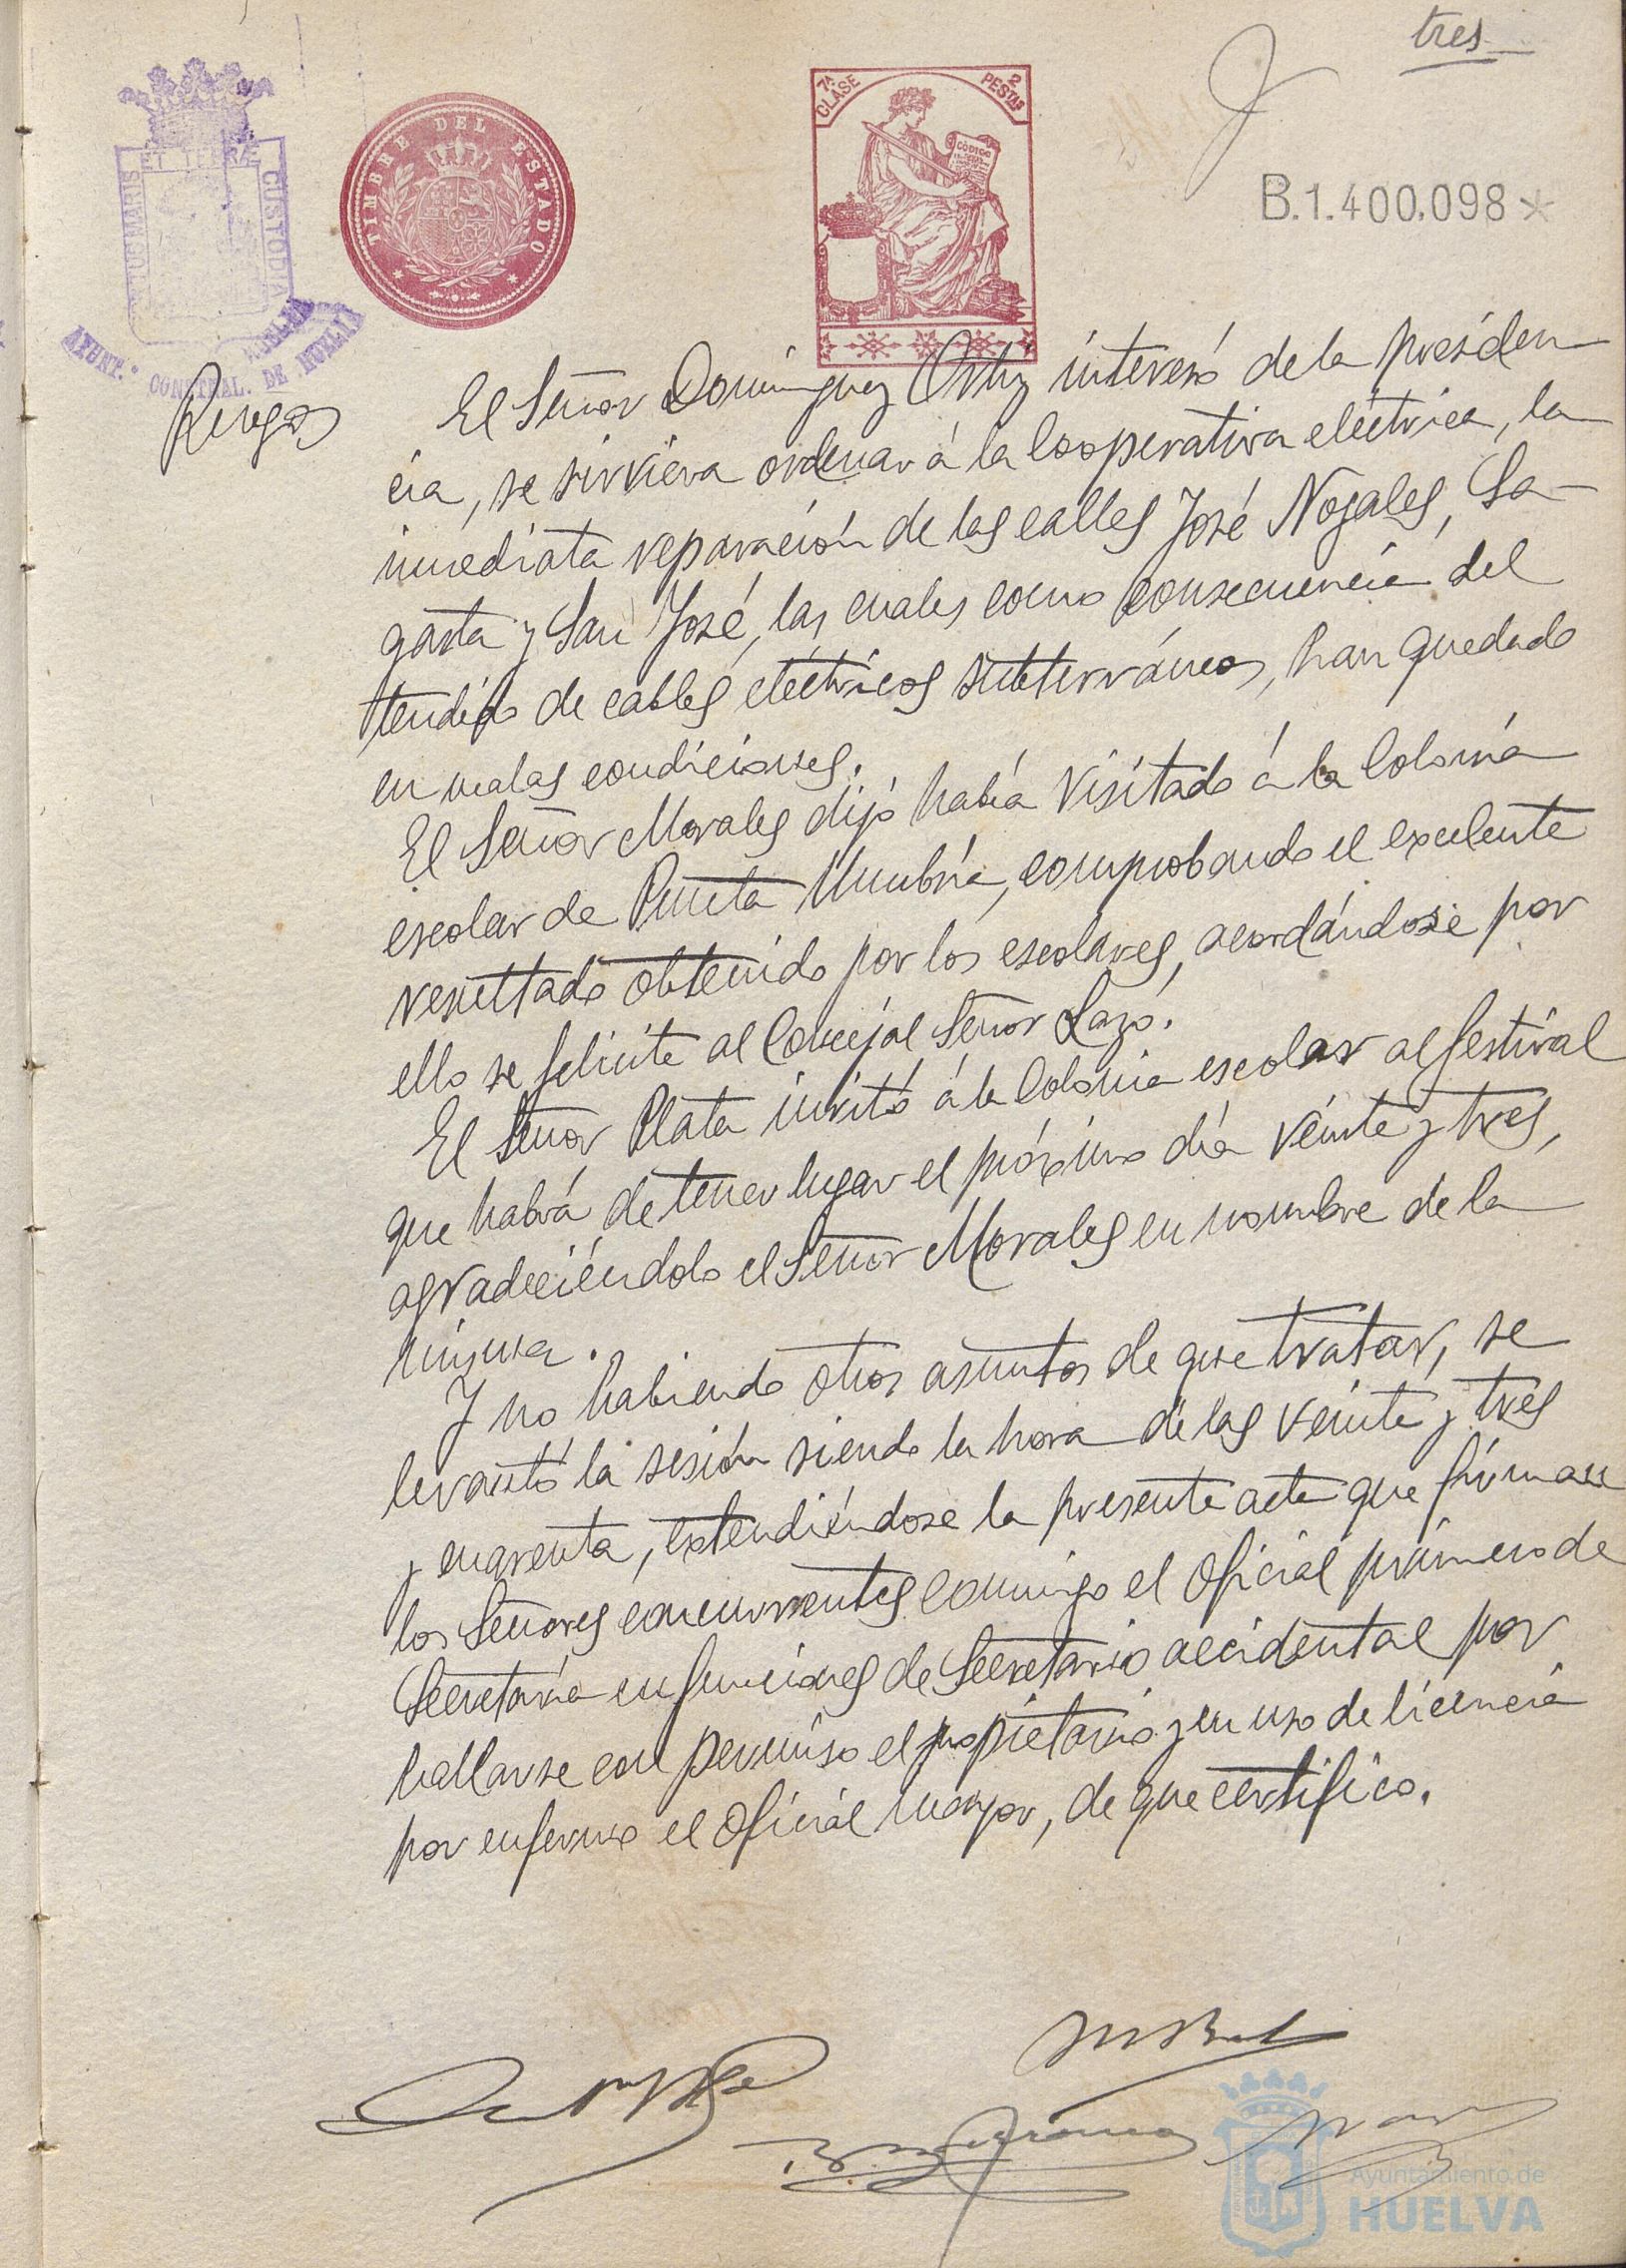 tres
PORTUS MARIS ET TERRAE CUSTODIA
AYUNT.º CONSTRAL. DE HUELVA
HUELVA
TIMBRE DEL ESTADO
7ª CLASE
2 PESTAS
CÓDIGO
B.1.400.098*
Ruegos
El Señor Domínguez Ortiz interesó de la presiden-
cia, se sirviera ordenar á la Cooperativa eléctrica, la
inmediata reparación de las calles José Nogales, Sa-
gasta y San José, las cuales como consecuencia del
tendido de cables eléctricos subterráneos, han quedado
en malas condiciones.
El Señor Morales dijo había visitado á la Colonia
escolar de Punta Umbría, comprobando el excelente
resultado obtenido por los escolares, acordándose por
ello se felicite al Concejal Señor Lazo.
El Señor Plata invitó á la Colonia escolar al festival
que habrá de tener lugar el próximo día veinte y tres,
agradeciéndolo el Señor Morales en nombre de la
misma.
Y no habiendo otros asuntos de que tratar, se
levantó la sesión siendo la hora de las veinte y tres
y cuarenta, extendiéndose la presente acta que firman
los Señores concurrentes conmigo el Oficial primero de
Secretaría en funciones de Secretario accidental por
hallarse con permiso el propietario y en uso de licencia
por enfermo el Oficial mayor, de que certifico.
Ayuntamiento de
HUELVA